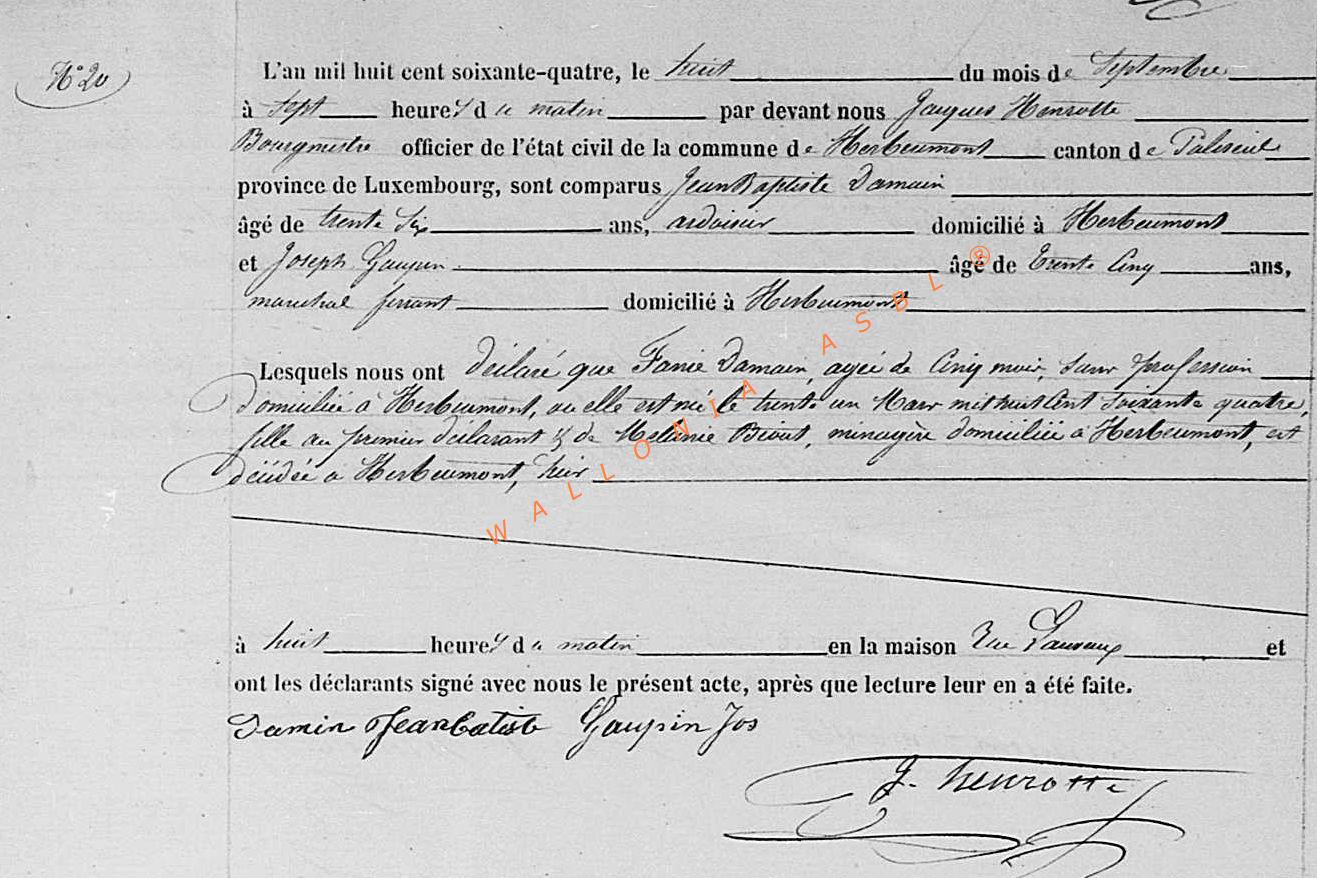 N° 20
L'an mil huit cent soixante-quatre, le huit du mois de Septembre
à sept heures du matin par devant nous Jacques Henrotte
Bourgmestre officier de l'état civil de la commune de Herbeumont canton de Paliseul
province de Luxembourg, sont comparus Jean Baptiste Damain
âgé de trente six ans, ardoisier domicilié à Herbeumont
et Joseph Gaupin âgé de trente cinq ans,
maréchal ferrant domicilié à Herbeumont
Lesquels nous ont déclaré que Fanie Damain, agée de cinq mois, sans profession
domiciliée à Herbeumont, ou elle est né le trente un Mars mil huit cent soixante quatre,
fille au premier déclarant & de Mélanie, ménagère domiciliée à Herbeumont, est
décédée à Herbeumont, hier
à huit heures du matin en la maison rue et
ont les déclarants signé avec nous le présent acte, après que lecture leur en a été faite.
Damin Jeanbatiste Gaupin Jos
J. Henrotte
WALLONIA ASBL ®